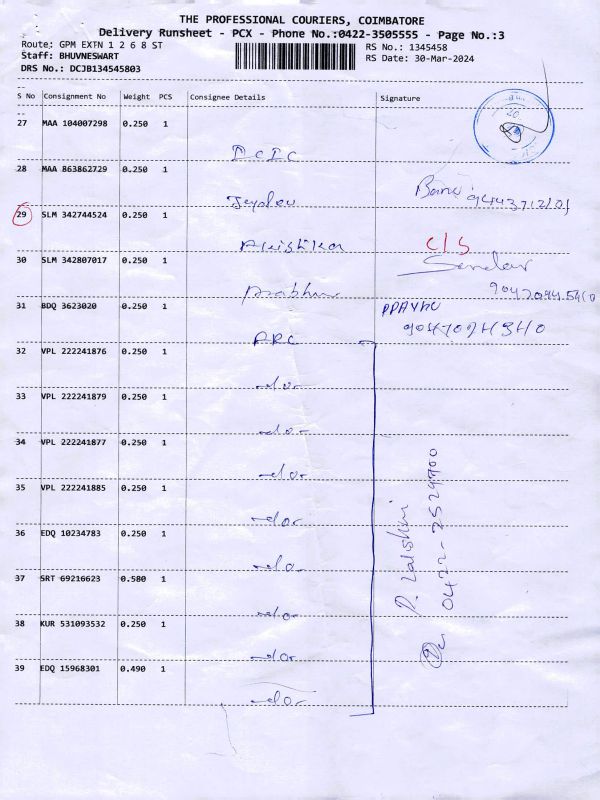 THE PROFESSIONAL COURIERS, COIMBATORE
Delivery Runsheet - PCX - Phone No.:0422-3505555 - Page No.:3
Route: GPM EXTN 1 2 6 8 ST
RS No.: 1345458
Staff: BHUVNESWART
RS Date: 30-Mar-2024
DRS No.: DCJB134545803
S No Consignment No Weight PCS Consignee Details Signature
27 MAA 104007298 0.250 1
DCIC
28 MAA 863862729 0.250 1
Banu
29 SLM 342744524 0.250 1
C/S
30 SLM 342807017 0.250 1
Prabhu
31 BDQ 3623020 0.250 1
ARC
32 VPL 222241876 0.250 1
-do-
33 VPL 222241879 0.250 1
-do-
34 VPL 222241877 0.250 1
-do-
35 VPL 222241885 0.250 1
-do-
36 EDQ 10234783 0.250 1
-do-
37 SRT 69216623 0.580 1
-do-
38 KUR 531093532 0.250 1
-do-
39 EDQ 15968301 0.490 1
-do-